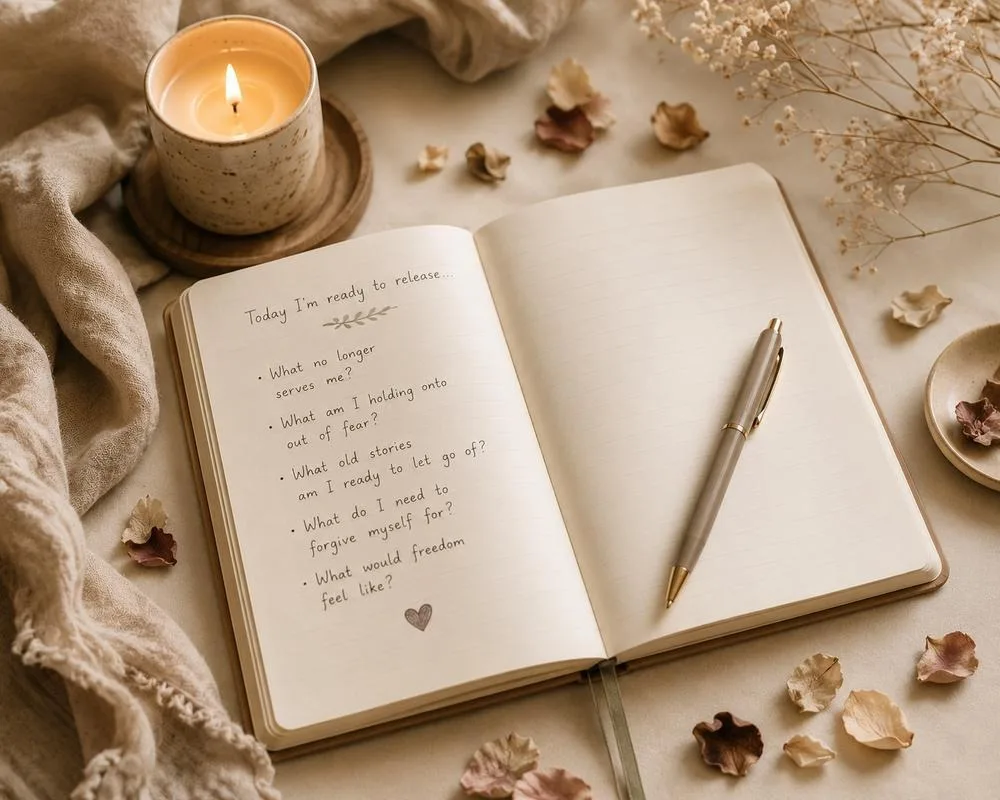 Today I'm ready to release...
• What no longer
serves me?
• What am I holding onto
out of fear?
• What old stories
am I ready to let go of?
• What do I need to
forgive myself for?
• What would freedom
feel like?